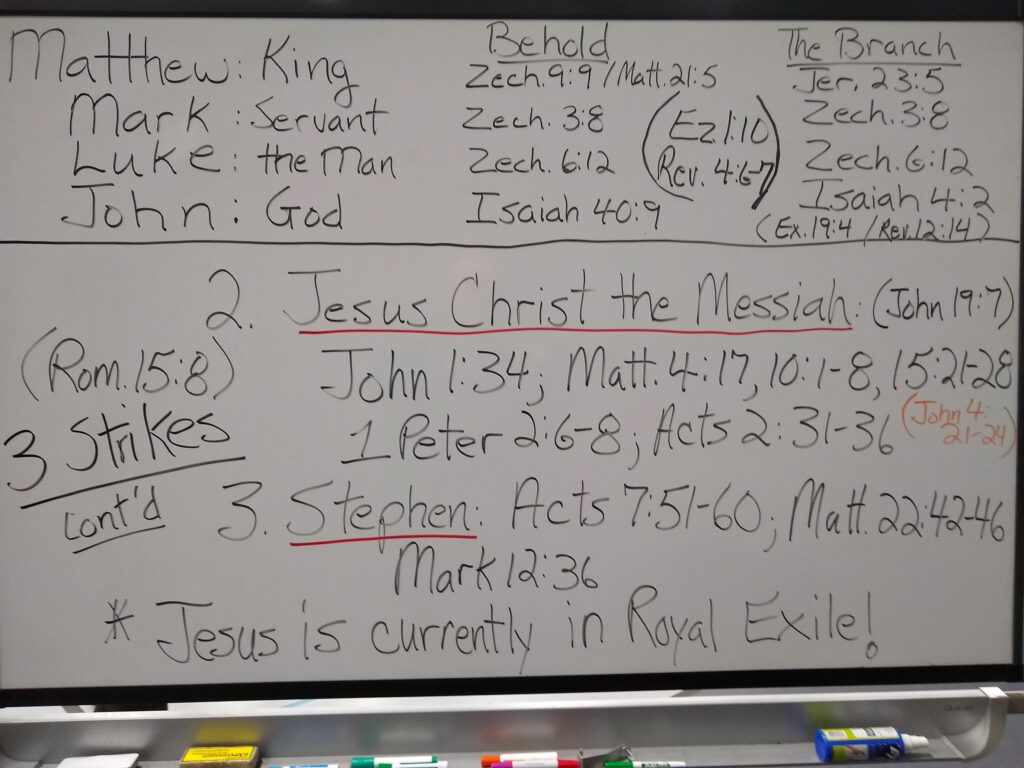 Matthew: King
Mark: Servant
Luke: the Man
John: God
Behold
Zech. 9:9 / Matt. 21:5
Zech. 3:8
Zech. 6:12
Isaiah 40:9
(Ez 1:10
Rev. 4:6-7)
The Branch
Jer. 23:5
Zech. 3:8
Zech. 6:12
Isaiah 4:2
(Ex. 19:4 / Rev. 12:14)
2. Jesus Christ the Messiah: (John 19:7)
(Rom. 15:8)
John 1:34; Matt. 4:17, 10:1-8, 15:21-28
3 Strikes
cont'd
1 Peter 2:6-8; Acts 2:31-36
(John 4:
21-24)
3. Stephen: Acts 7:51-60; Matt. 22:42-46
Mark 12:36
* Jesus is currently in Royal Exile!